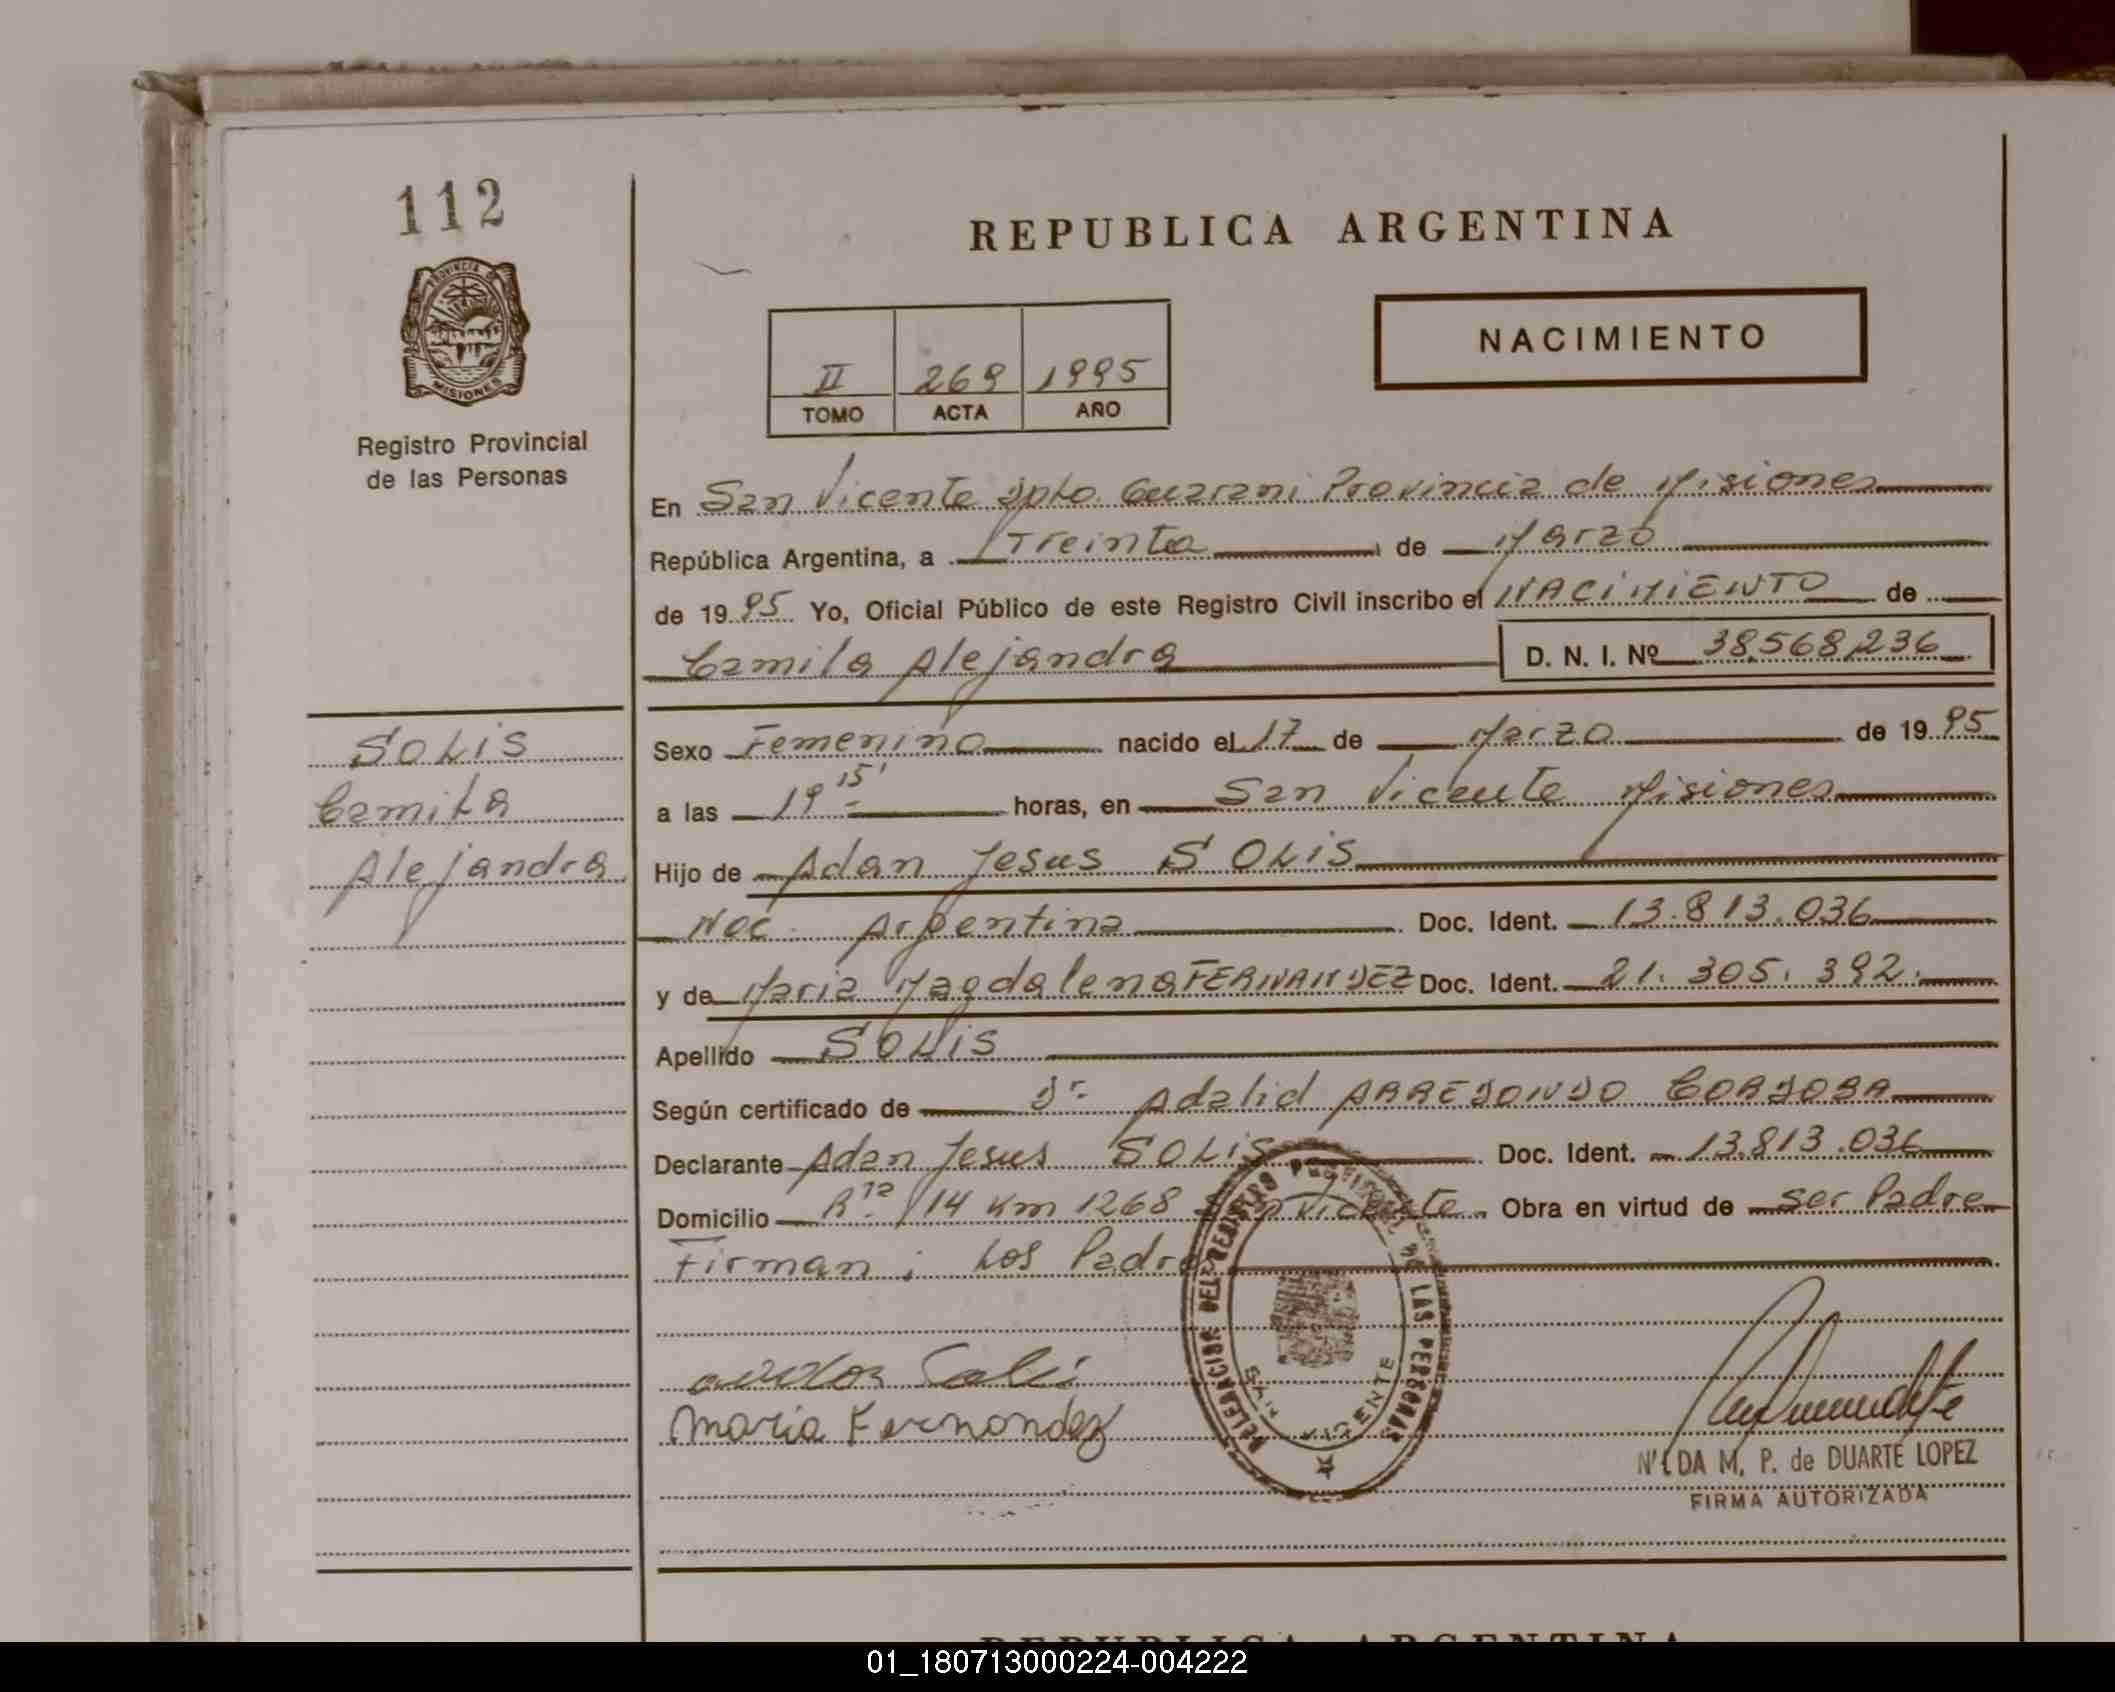 112
PROVINCIA DE
MISIONES
Registro Provincial
de las Personas
REPUBLICA ARGENTINA
NACIMIENTO
II 269 1995
TOMO ACTA AÑO
En San Vicente Dpto. Guarani Provincia de Misiones
República Argentina, a Treinta de Marzo
de 1995 Yo, Oficial Público de este Registro Civil inscribo el NACIMIENTO de
Camila Alejandra D. N. I. Nº 38.568.236
SOLIS
Camila
Alejandra
Sexo Femenino nacido el 17 de Marzo de 1995
a las 19 15' horas, en San Vicente Misiones
Hijo de Adan Jesus SOLIS
Nac. Argentina Doc. Ident. 13.813.036
y de Maria Magdalena FERNANDEZ Doc. Ident. 21.305.392.
Apellido SOLIS
Según certificado de Dr. Adalid ARREDONDO CORDOBA
Declarante Adan Jesus SOLIS Doc. Ident. 13.813.036
Domicilio Rta. 14 Km 1268 Vicente Obra en virtud de ser Padre
Firman: Los Padre
Maria Fernandez
DELEGACION DEL REGISTRO PROVINCIAL DE LAS PERSONAS
SAN VICENTE
NILDA M. P. de DUARTE LOPEZ
FIRMA AUTORIZADA
REPUBLICA ARGENTINA
01_180713000224-004222